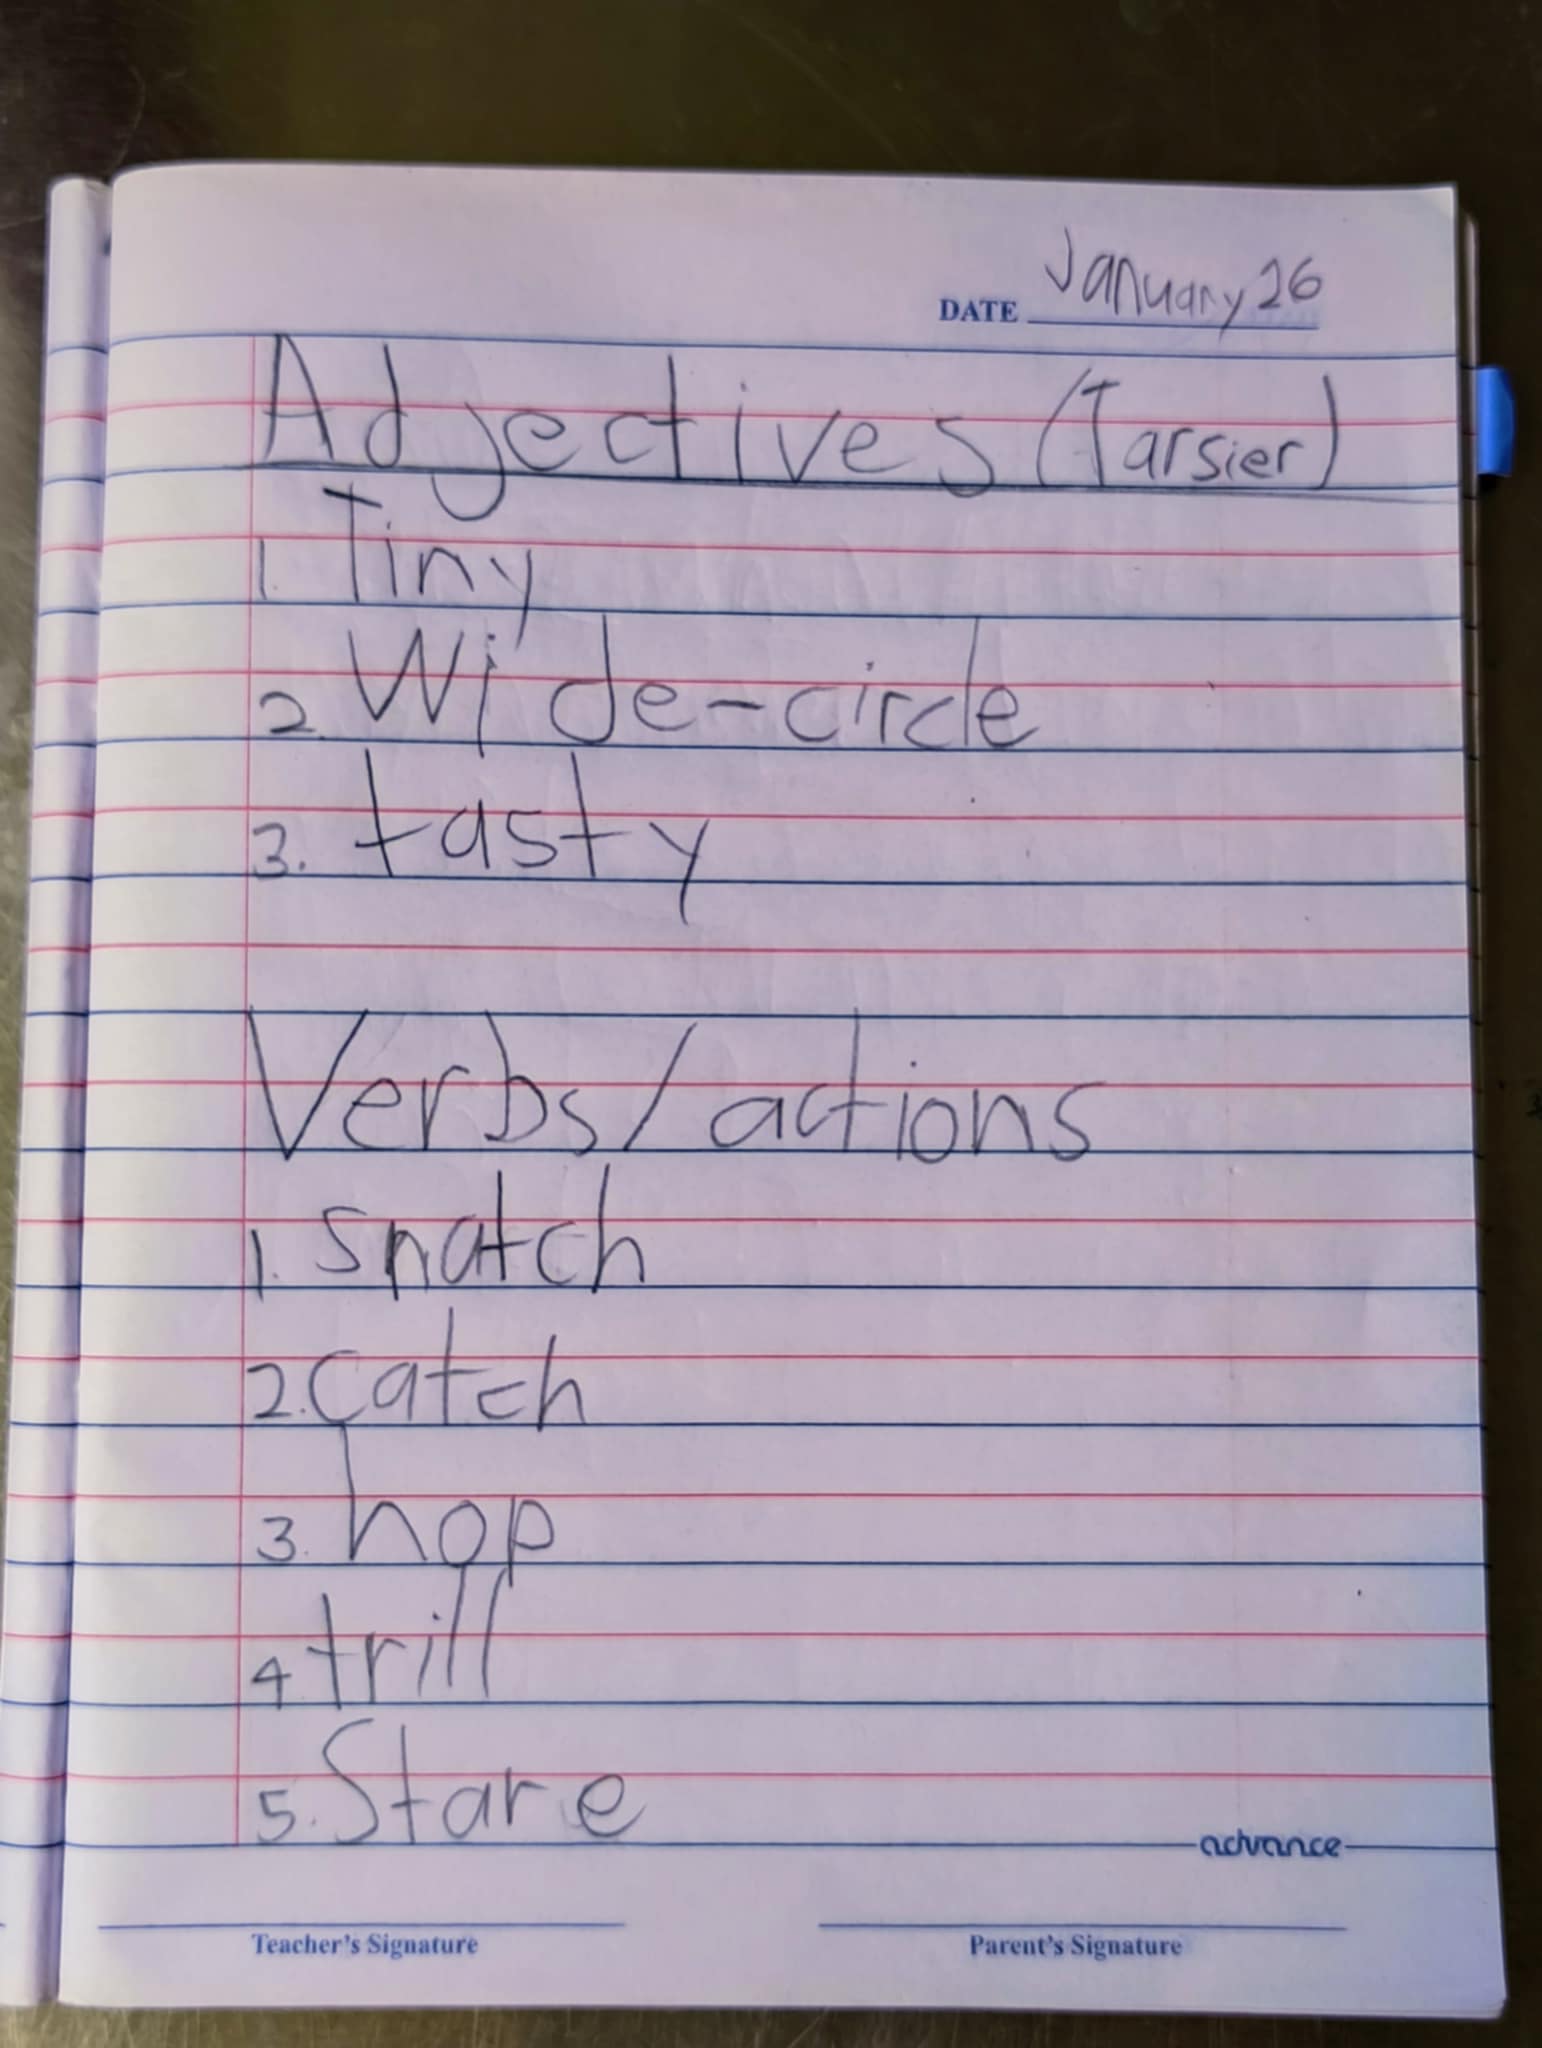 January 26
DATE
Adjectives (Tarsier)
1. Tiny
2. Wide-circle
3. tasty
Verbs/actions
1. snatch
2. catch
3. hop
4 trill
5. Stare
advance
Teacher's Signature Parent's Signature